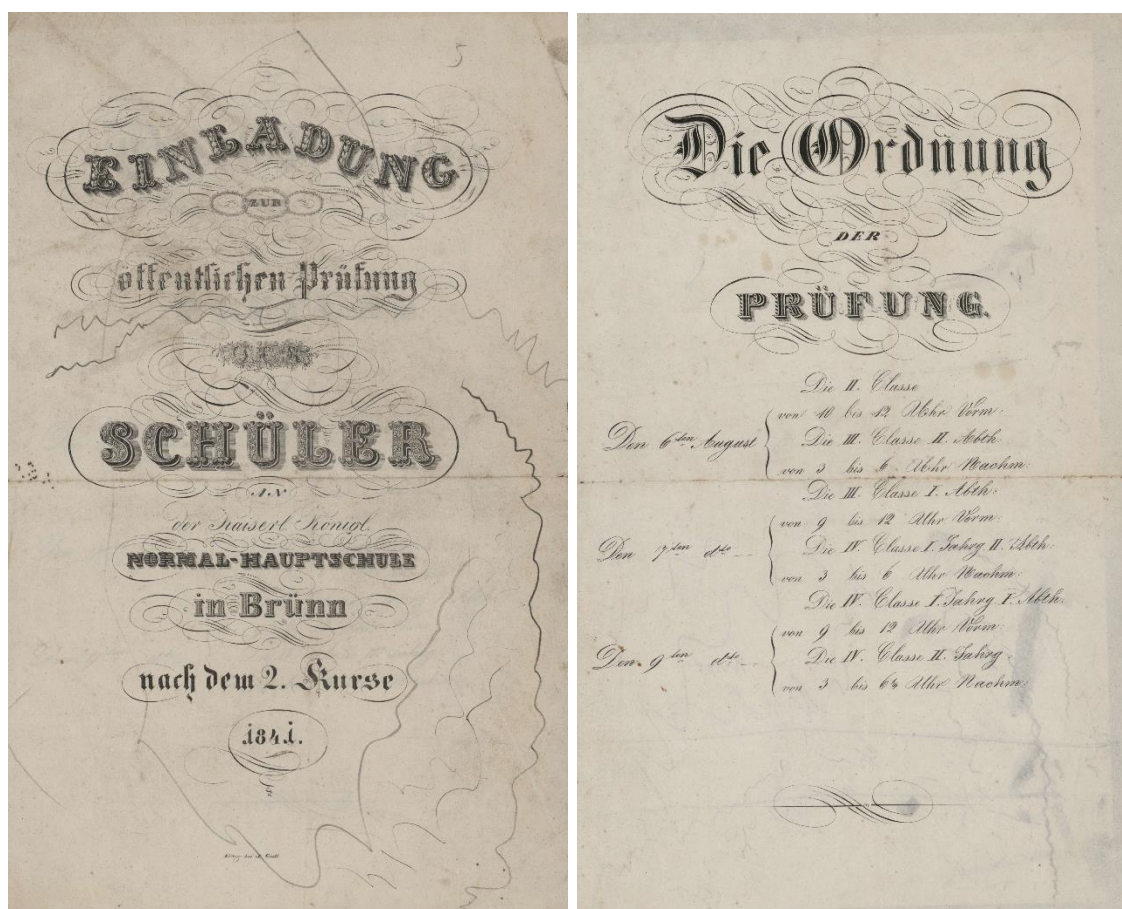 EINLADUNG
ZUR
öffentlichen Prüfung
DER
SCHÜLER
AN
der Kaiserl Königl.
NORMAL-HAUPTSCHULE
in Brünn
nach dem 2. Kurse
1841.
Die Ordnung
DER
PRÜFUNG.
Die II. Classe
von 10 bis 12 Uhr Vorm:
Den 6ten August
Die III. Classe II. Abth
von 3 bis 6 Uhr Nachm:
Die III. Classe I. Abth:
von 9 bis 12 Uhr Vorm:
Den 7ten dto
Die IV. Classe I. Jahrg II. Abth:
von 3 bis 6 Uhr Nachm:
Die IV. Classe I. Jahrg I. Abth.
von 9 bis 12 Uhr Vorm:
Den 9ten dto
Die IV. Classe II. Jahrg
von 3 bis Uhr Nachm: